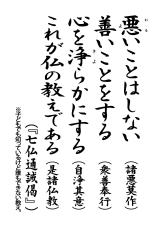 悪いことはしない（諸悪莫作）
善いことをする（衆善奉行）
心を浄らかにする（自浄其意）
これが仏の教えである（是諸仏教）
（『七仏通誡偈』）